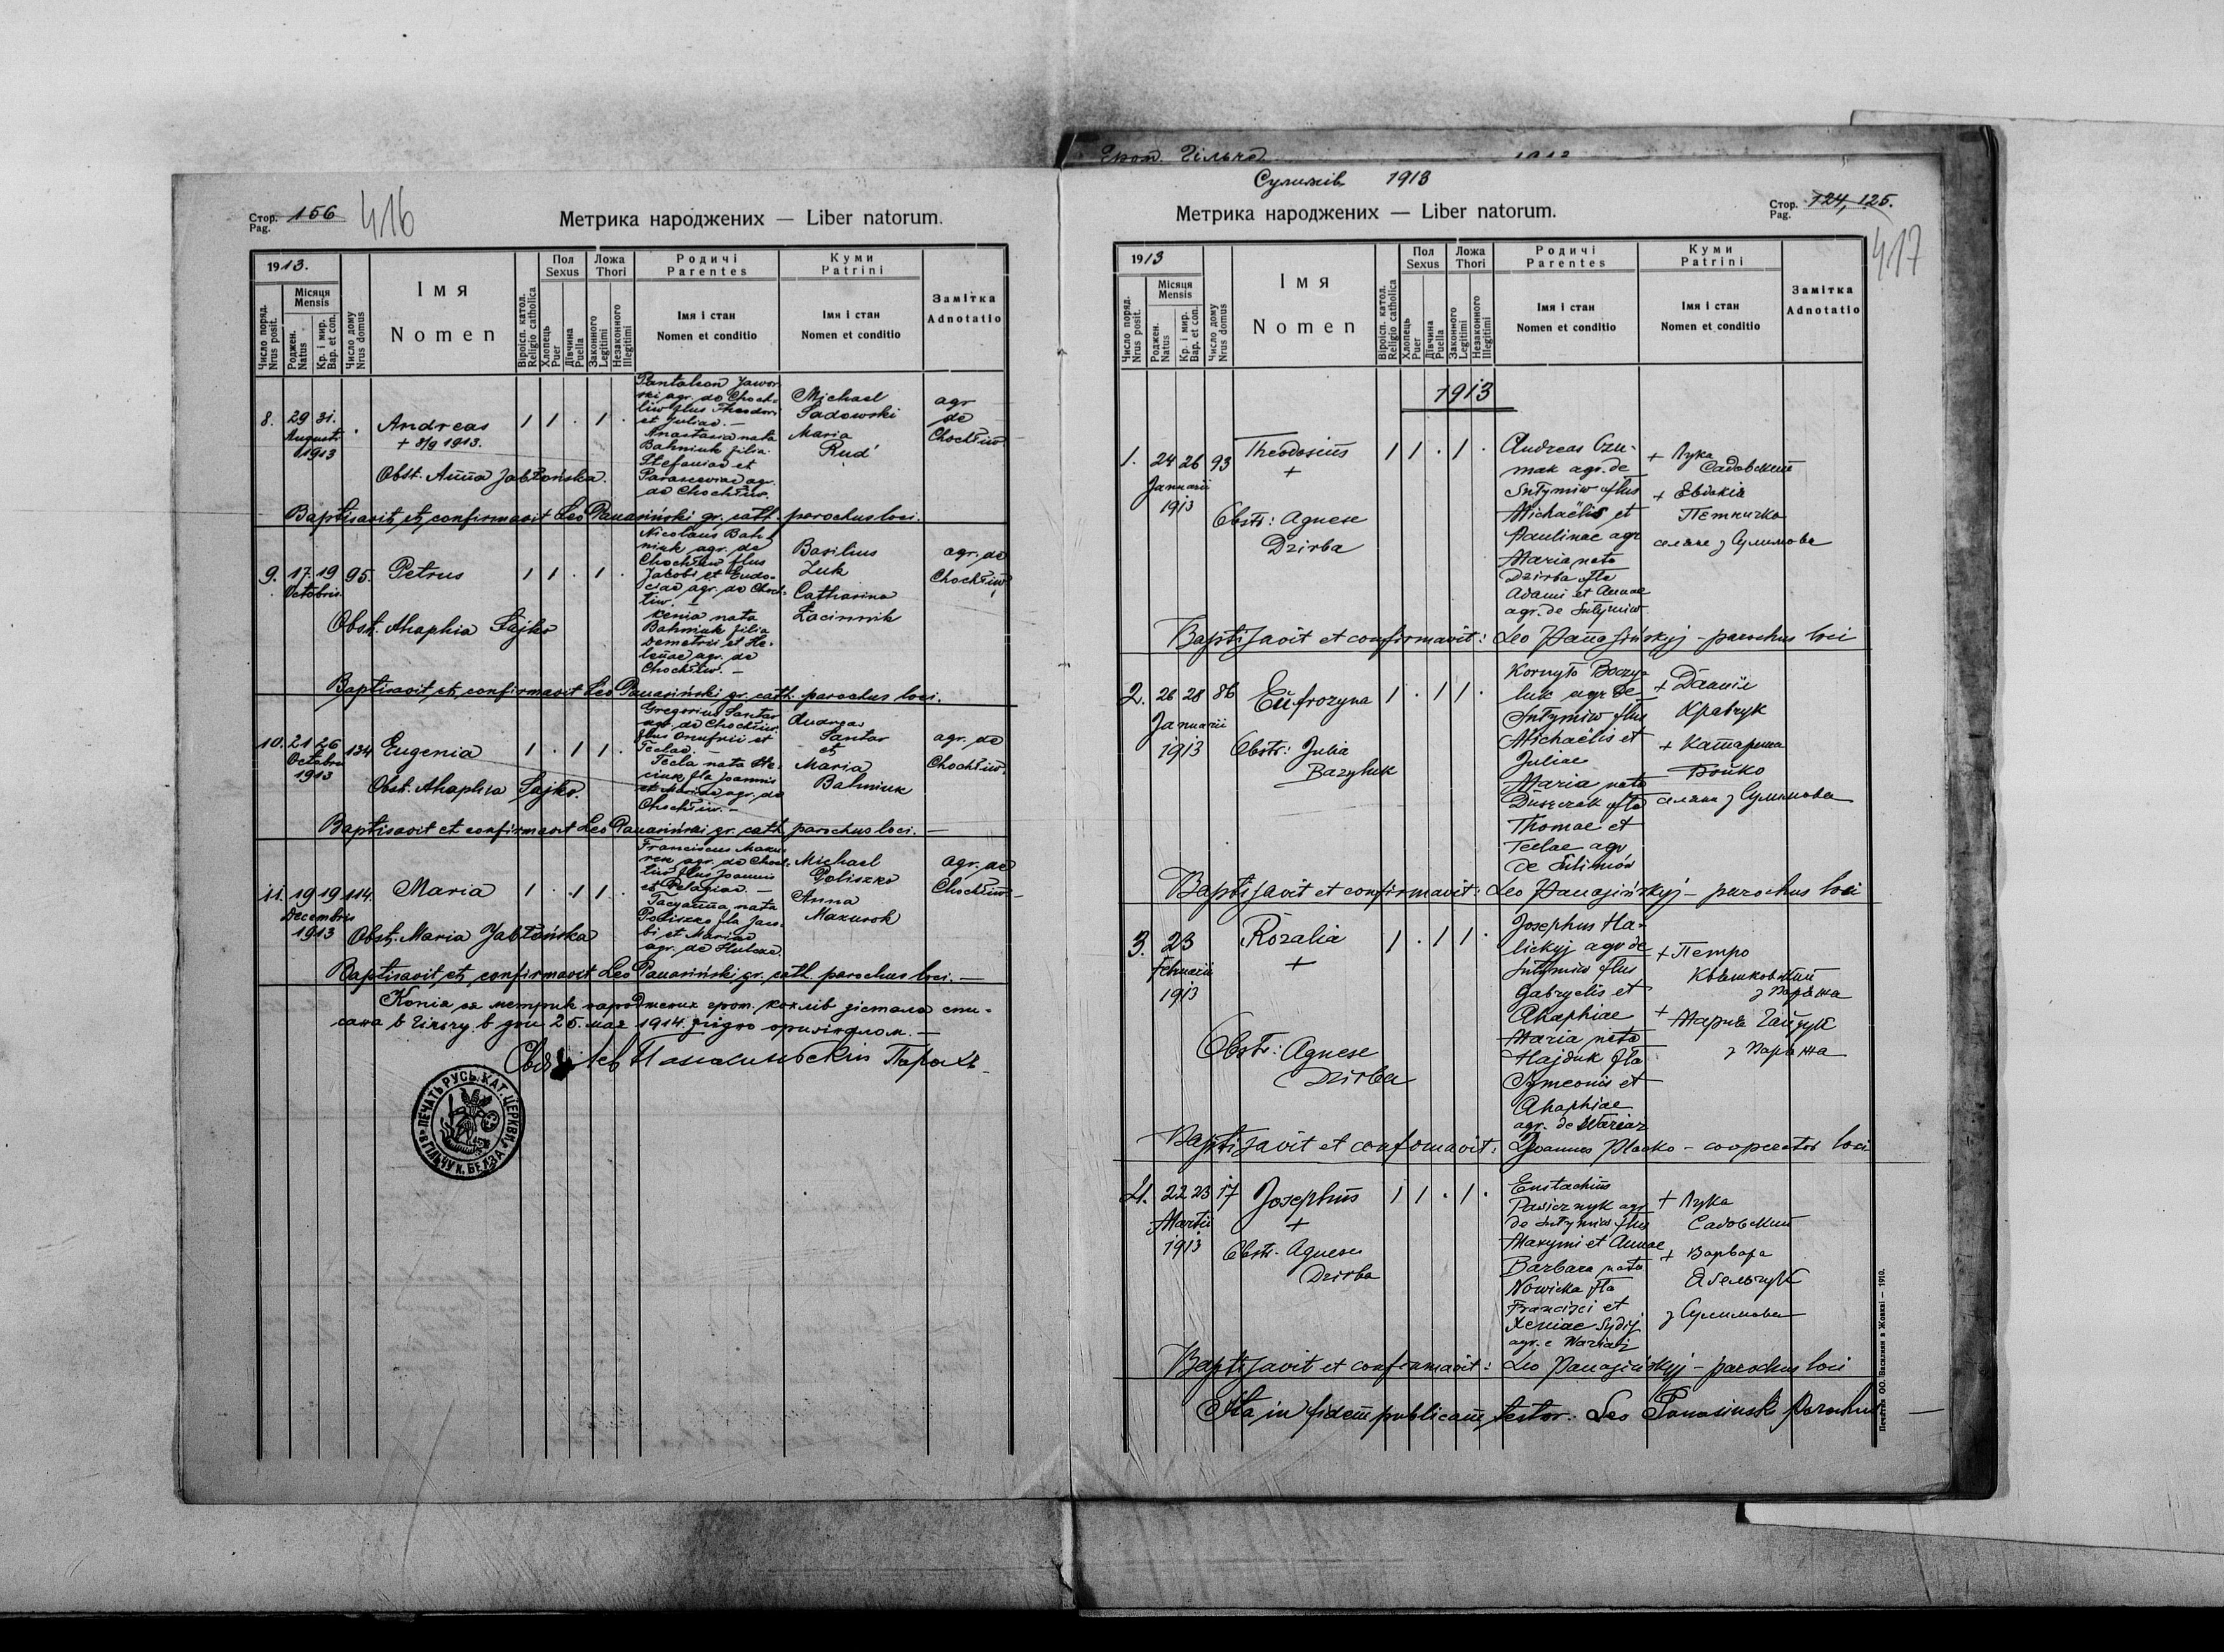 Стор. 156
Pag.
416
Метрика народжених — Liber natorum.
1913.
Число поряд.
Nrus posit.
Місяця
Mensis
Роджен.
Natus
Кр. і мир.
Bap. et con.
Число дому
Nrus domus
Імя
Nomen
Віроісп. катол.
Religio catholica
Пол
Sexus
Хлопець
Puer
Дівчина
Puella
Ложа
Thori
Законного
Legitimi
Незаконного
Illegitimi
Родичі
Parentes
Імя і стан
Nomen et conditio
Куми
Patrini
Імя і стан
Nomen et conditio
Замітка
Adnotatio
8. 29 31.
Augusti
1913
Andreas
+ 8/9 1913.
1 1 . 1 .
Obst. Anna Jabłońska.
Pantaleon Jawor
ski agr. de Choch-
liw flus Theodori
et Juliae. —
Anastasia nata
Bahniuk filia
Stefaniae et
Parasceviae agr.
de Chochłiw.
Michael
Sadowski
Maria
Rud
agr
de
Chochłiw
Baptisavit et confirmavit Leo Panasiński gr. cath. parochus loci.
9. 17. 19 95.
Octobris
Petrus
1 1 . 1 .
Obst. Ahaphia Sajko
Nicolaus Bah
niuk agr. de
Chochłiw flus
Jacobi et Eudo-
ciae agr. de Choch-
liw. —
Xenia nata
Bahniuk filia
Demetrii et He-
lenae agr. de
Chochłiw. —
Basilius
Zuk
Catharina
Łacinnik
agr. de
Chochłiw
Baptisavit et confirmavit Leo Panasiński gr. cath. parochus loci.
10. 21 26 134
Octobris
1913
Eugenia
1 . 1 1 .
Obst. Ahaphia Sajko.
Gregorius Santar
agr. de Chochłiw
flus Onufrii et
Teclae. —
Tecla nata He-
ciuk fla Joannis
et Mariae agr. de
Chochłiw. —
Andreas
Santar
et
Maria
Bahniuk
agr. de
Chochłiw.
Baptisavit et confirmavit Leo Panasiński gr. cath. parochus loci. —
11. 19 19 114.
Decembris
1913
Maria
1 . 1 1 .
Obst. Maria Jabłońska
Franciscus Mazu
rek agr. de Choch-
liw flus Joannis
et Pelagiae. —
Tacyanna nata
Poliszko fla Jaco-
bi et Mariae
agr. de Hulcze.
Michael
Poliszko
Anna
Mazurok
agr. de
Chochłiw
Baptisavit et confirmavit Leo Panasiński gr. cath. parochus loci. —
Копіа са метрик народжених гром. Хохлів зістала спи-
сана в Гільчу в дни 25. мая 1914 згідно оригіналом. —
Лев Панасиньскій Парох
ПЕЧАТЬ РУСЬ. КАТ. ЦЕРКВИ В ГІЛЬЧУ К. БЕЛЗА
Гром. Гільче 1913
Сулимів 1913
Метрика народжених — Liber natorum.
Стор. 124, 125.
Pag.
417
1913
Число поряд.
Nrus posit.
Місяця
Mensis
Роджен.
Natus
Кр. і мир.
Bap. et con.
Число дому
Nrus domus
Імя
Nomen
Віроісп. катол.
Religio catholica
Пол
Sexus
Хлопець
Puer
Дівчина
Puella
Ложа
Thori
Законного
Legitimi
Незаконного
Illegitimi
Родичі
Parentes
Імя і стан
Nomen et conditio
Куми
Patrini
Імя і стан
Nomen et conditio
Замітка
Adnotatio
1913
1. 24 26 93
Januarii
1913
Theodosius
+
1 1 . 1 .
Obstr: Agnese
Dzirba
Andreas Czu-
mak agr. de
Sułymiw flus
Michaëlis et
Paulinae agr
Maria nata
Dzirba fla
Adami et Annae
agr. de Sułymiw
+ Лука
Садовский
+ Евдокія
Петничко
селяне з Сулимова
Baptisavit et confirmavit: Leo Panasińskyj - parochus loci
2. 26 28 86
Januarii
1913
Eufrozyna
1 . 1 1 .
Obstr: Julia
Bazyluk
Kornyło Bazy-
luk agr de
Sułymiw flus
Michaëlis et
Juliae
Maria nata
Duszczak fla
Thomae et
Teclae agr
de Sulimów
+ Данниїл
Кравчук
+ Катарина
Бойко
селяне з Сулимова
Baptisavit et confirmavit: Leo Panasińskyj - parochus loci
3. 23
Februarii
1913
Rozalia
+
1 . 1 1 .
Obstr: Agnese
Dzirba
Josephus Ha-
lickyj agr de
Sułymiw flus
Gabryelis et
Ahaphiae
Maria nata
Hajduk fla
Symeonis et
Ahaphiae
agr. de Wariaz
+ Петро
Квашковский
з Варяжа
+ Мария Гайдук
з Варяжа
Baptisavit et confomavit: Joannes Placko - cooperator loci
4. 22 23 17
Martii
1913
Josephus
+
1 1 . 1 .
Obstr. Agnese
Dzirba
Eustachius
Pasicznyk agr
de Sułymiw flus
Maxymi et Annae
Barbara nata
Nowicka fla
Francisci et
Xeniae Sydij
agr. e Wariaz
+ Лука
Садовский
+ Варвара
Абельчук
з Сулимова
Baptisavit et confirmavit: Leo Panasińskyj - parochus loci
Ita in fidem publicam testor. Leo Panasinski Parochus
Печатня ОО. Василиян в Жовкві — 1910.